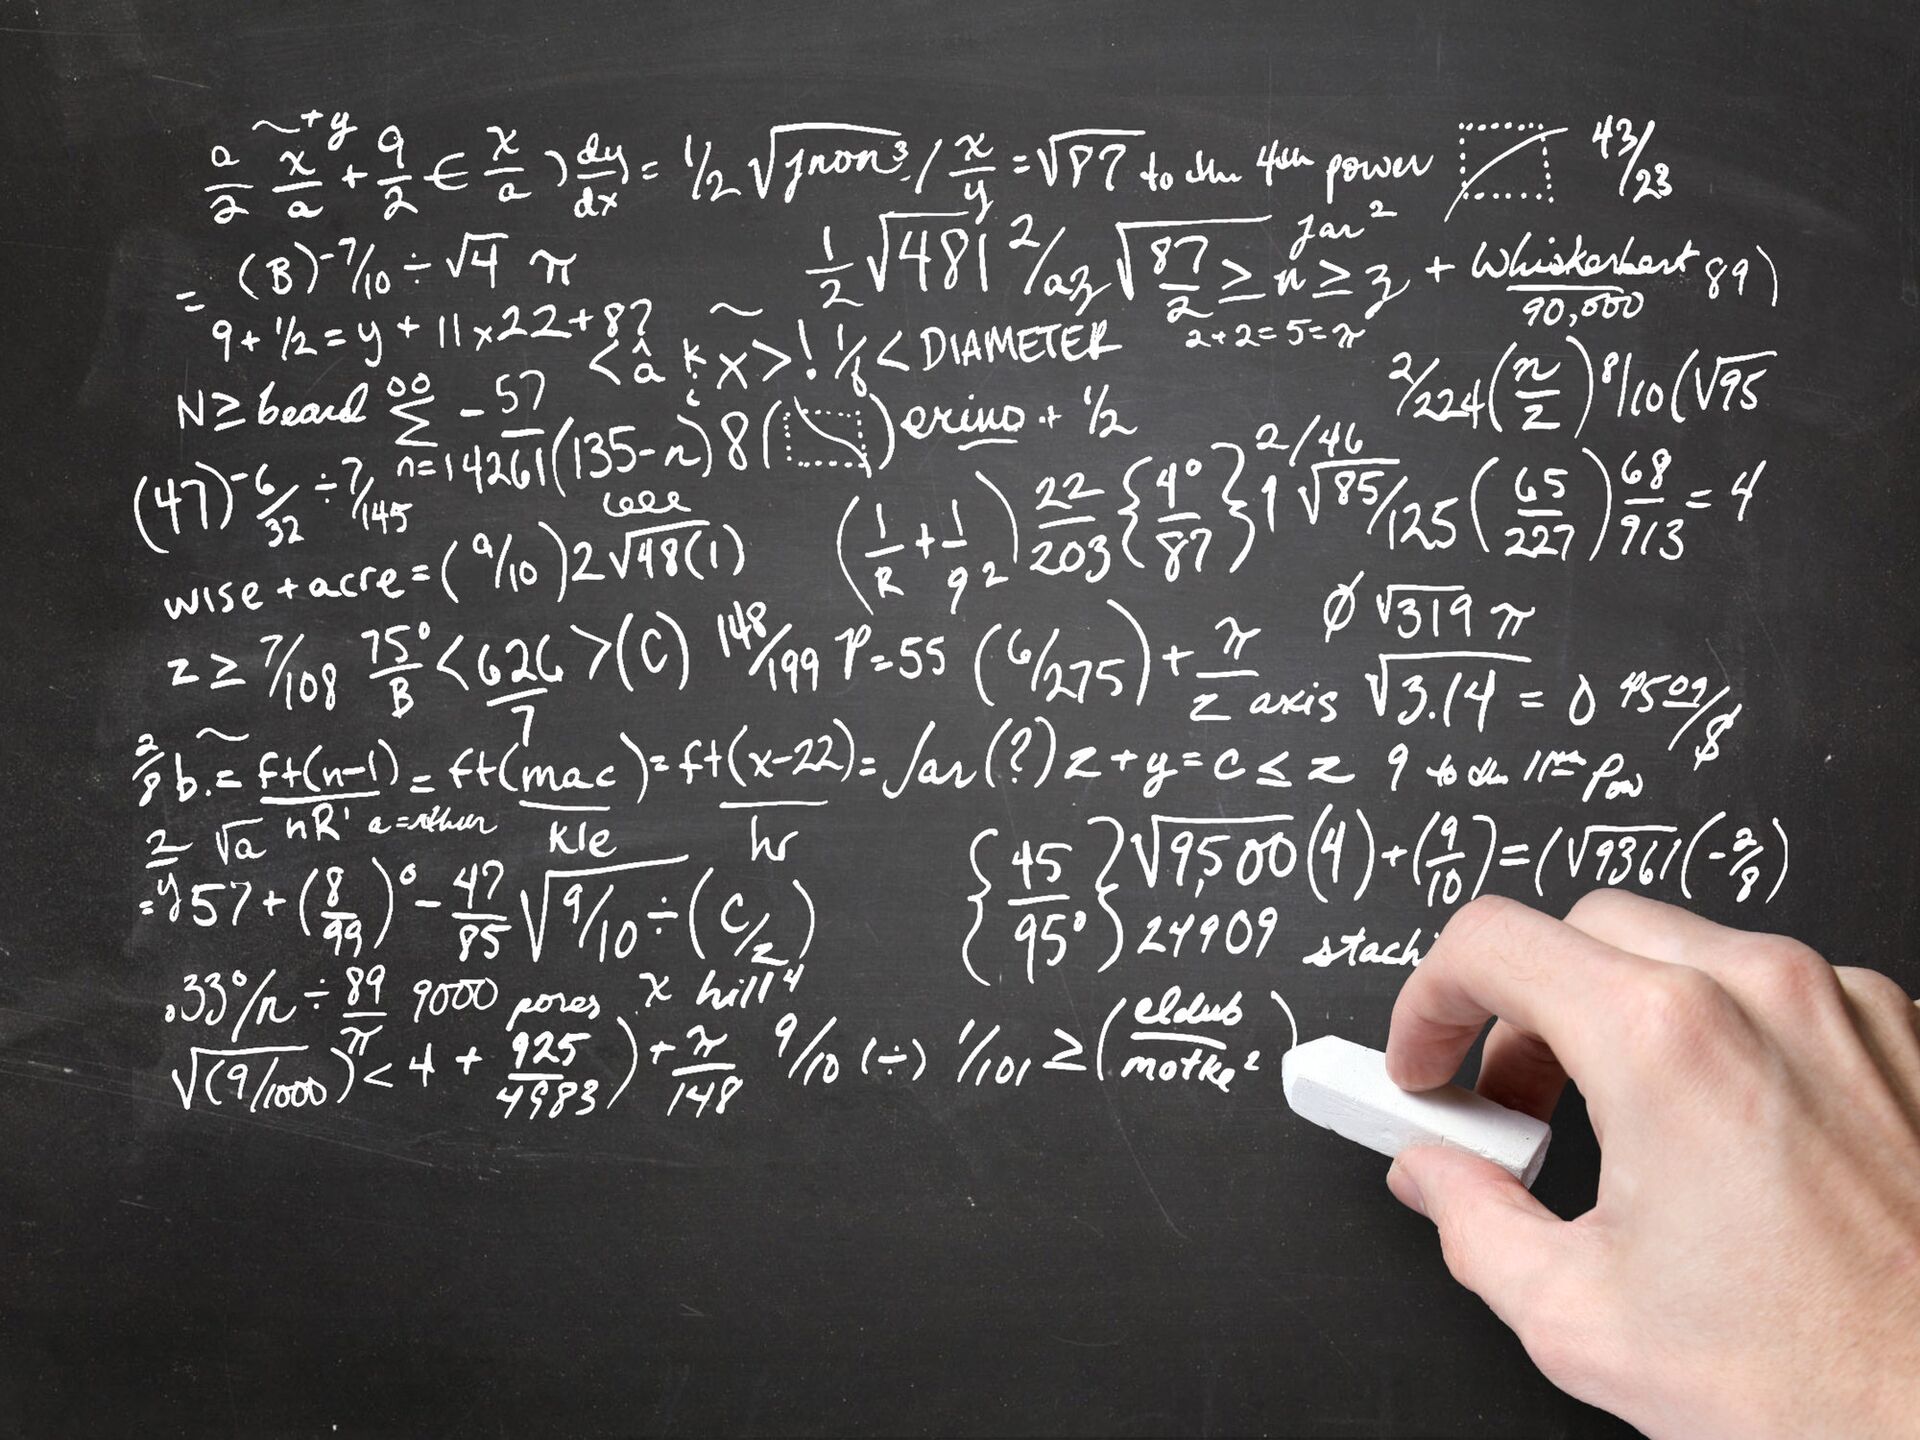 a/2 x/a ~ +y + 9/2 € x/a ) dy/dx = 1/2 √jnon³ / x/y = √87 to the 4th power 43/23
= (B)^-7/10 ÷ √4 π 1/2 √481 ²/az √87/2 ≥ n ≥ z jar² + Whiskerbert/90,000 89)
9 + 1/2 = y + 11 x 22 + 8? 2+2=5=π
<â k x> ! 1/8 < DIAMETER
N ≥ beard ∞ Σ n=14261 -57 (135-n) 8 ( ) erino + 1/2 2/224 (n/z) 8/10 (√95
(47)^-6/32 ÷ 7/145 (1/R + 1/9²) 22/203 {4°/87} 2/46 9 √85/125 (65/227) 68/913 = 4
wise + acre = (9/10) 2 √48(1)
z ≥ 7/108 75°/B < 626/7 > (C) 148/199 P=55 (6/275) + π/z axis Ø √319 π
√3.14 = 0 4509/$
2/8 b. = ft(n-1)/nR' = ft(mac)/kle = ft(x-22)/hr = Jar(?) z + y = c ≤ z 9 to the 11th Pow
2/y √a
=57 + (8/99)° - 47/85 √9/10 ÷ (C/z) {45/95°} √9,500 (4) + (9/10) = (√9361 (-2/8)
24909 stachi
.33°/n ÷ 89/π 9000 pores x hill⁴
√(9/1000)^π < 4 + 925/4983) + π/148 9/10 (÷) 1/101 ≥ (eldub/motke²)